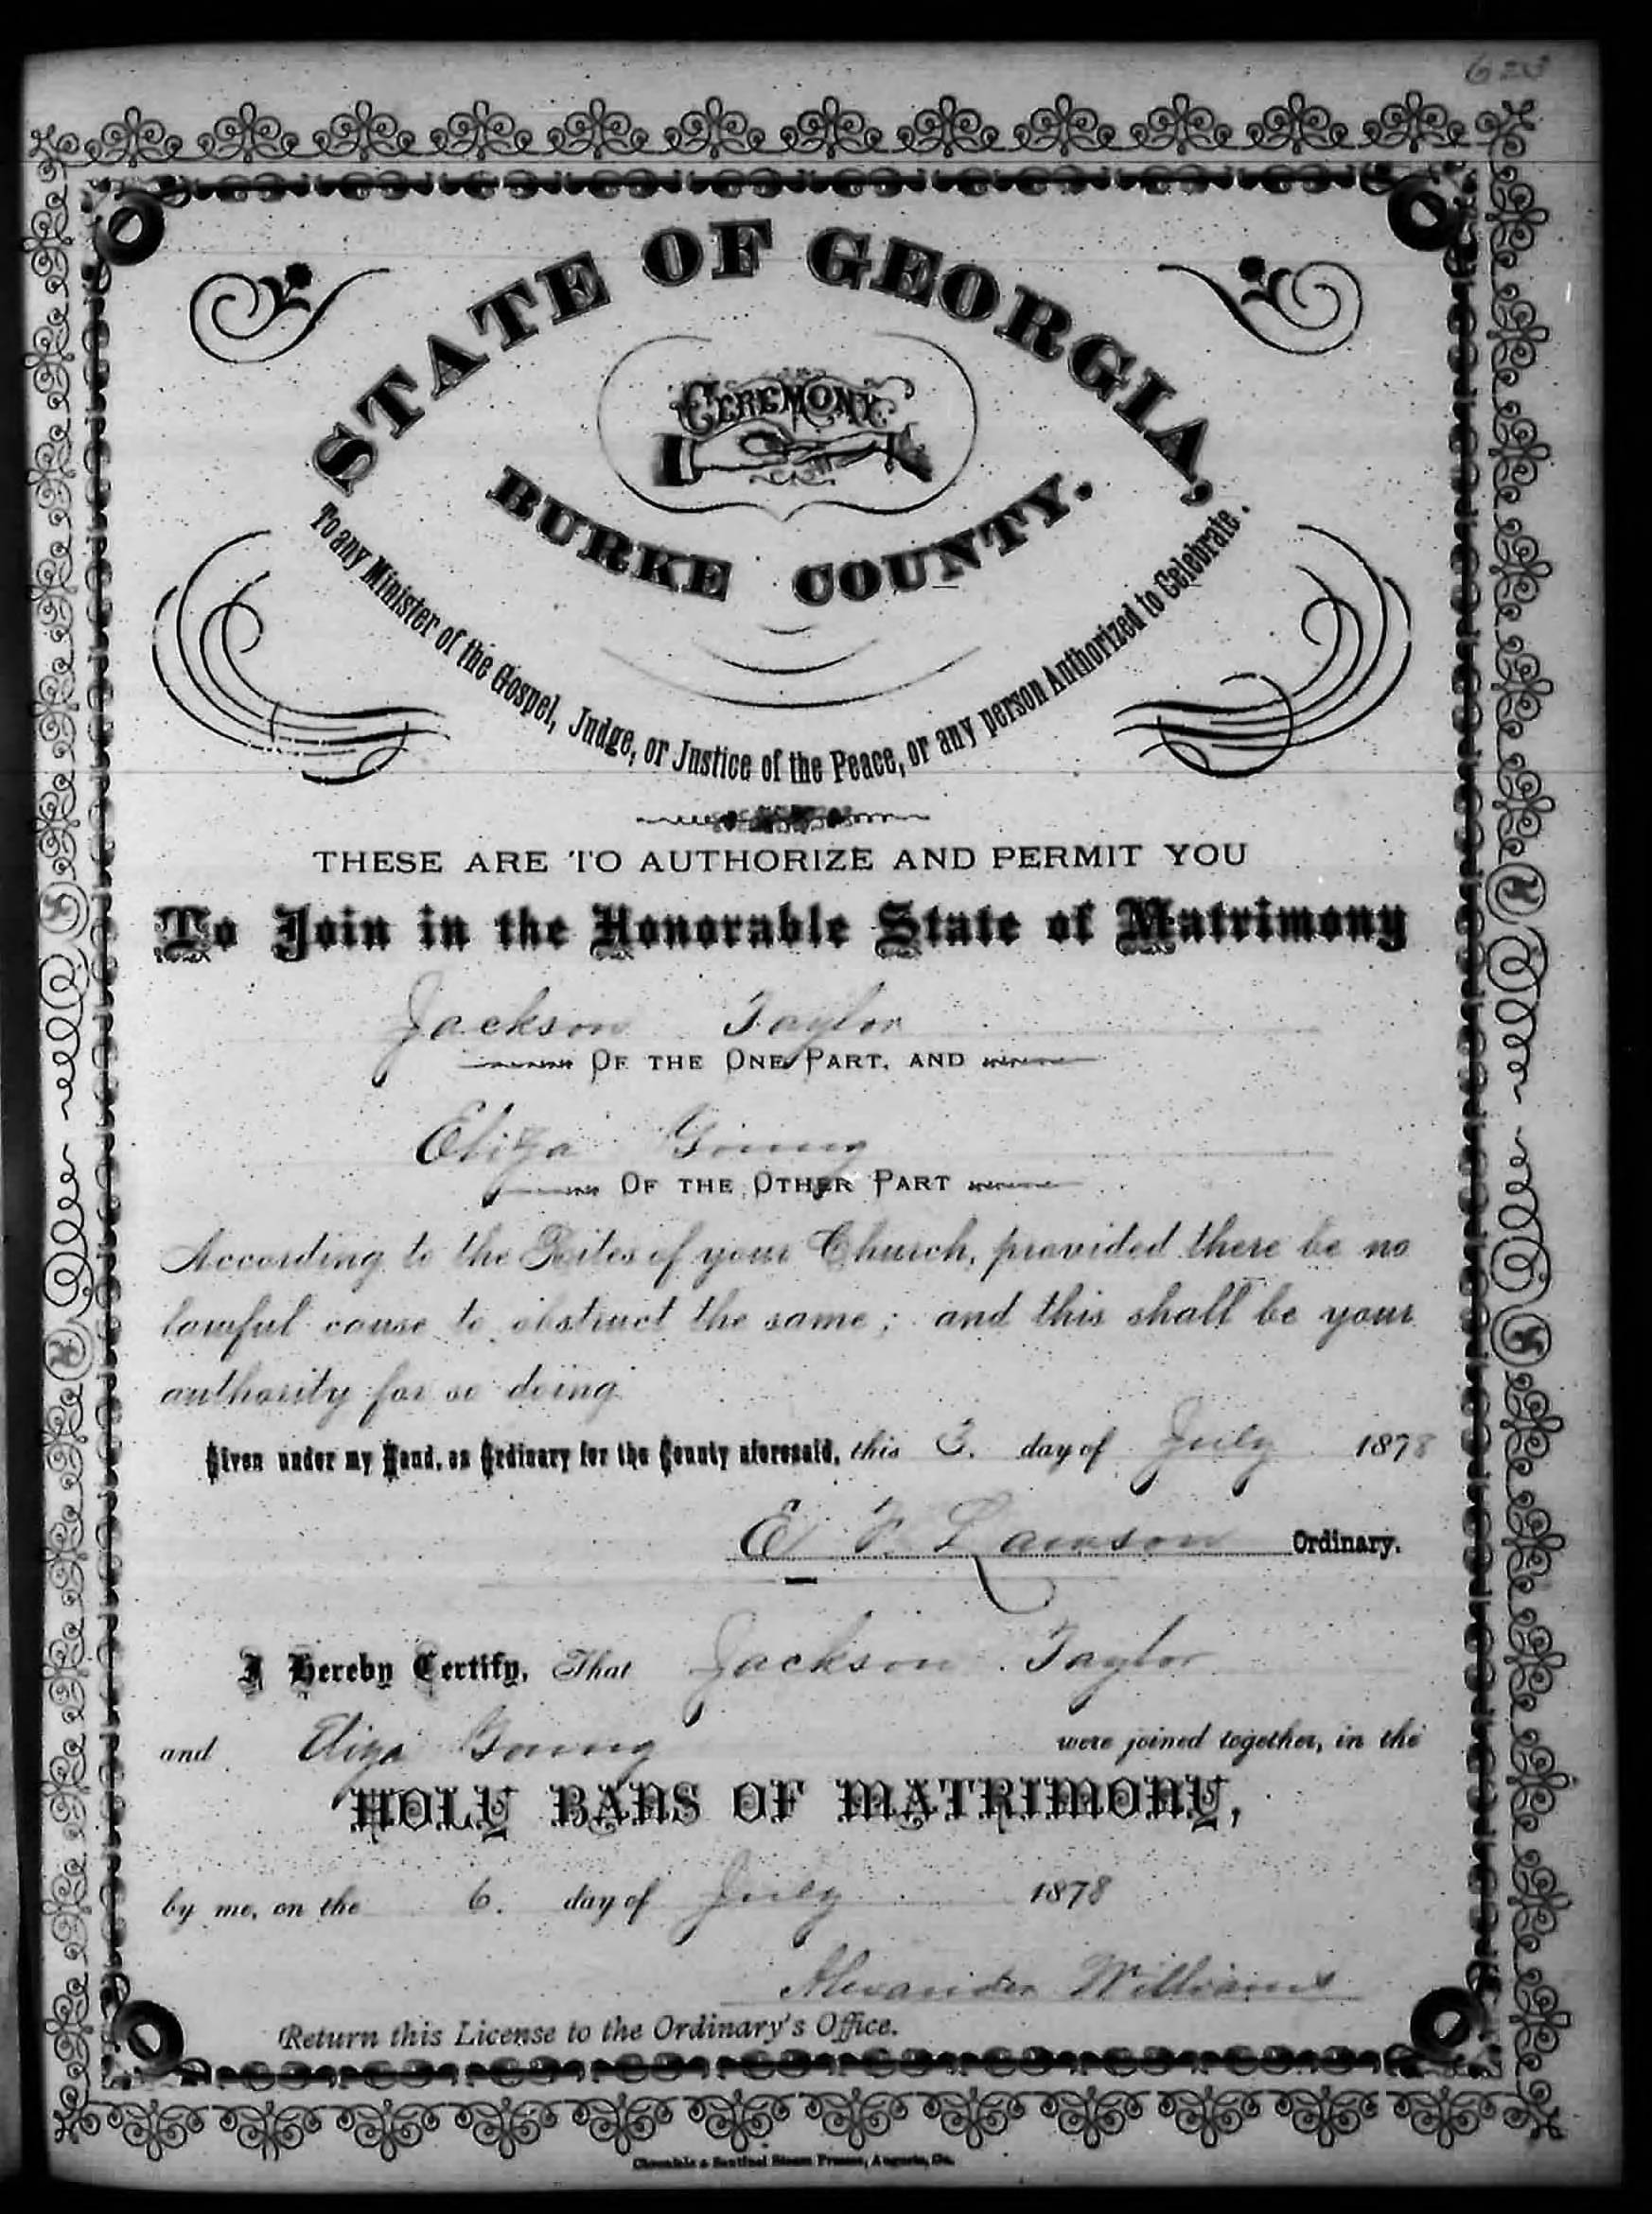 STATE OF GEORGIA,
CEREMONY
BURKE COUNTY.
To any Minister of the Gospel, Judge, or Justice of the Peace, or any person Authorized to Celebrate.
THESE ARE TO AUTHORIZE AND PERMIT YOU
To Join in the Honorable State of Matrimony
Jackson Taylor
OF THE ONE PART, AND
Eliza
OF THE OTHER PART
According to the Rites of your Church, provided there be no
lawful cause to obstruct the same; and this shall be your
authority for so doing
Given under my Hand, as Ordinary for the County aforesaid, this 3. day of July 1878
E. F. Lawson Ordinary.
I Hereby Certify, That Jackson Taylor
and Eliza were joined together, in the
HOLY BANS OF MATRIMONY,
by me, on the 6. day of July 1878
Alexander Williams
Return this License to the Ordinary's Office.
Chronicle & Sentinel Steam Presses, Augusta, Ga.